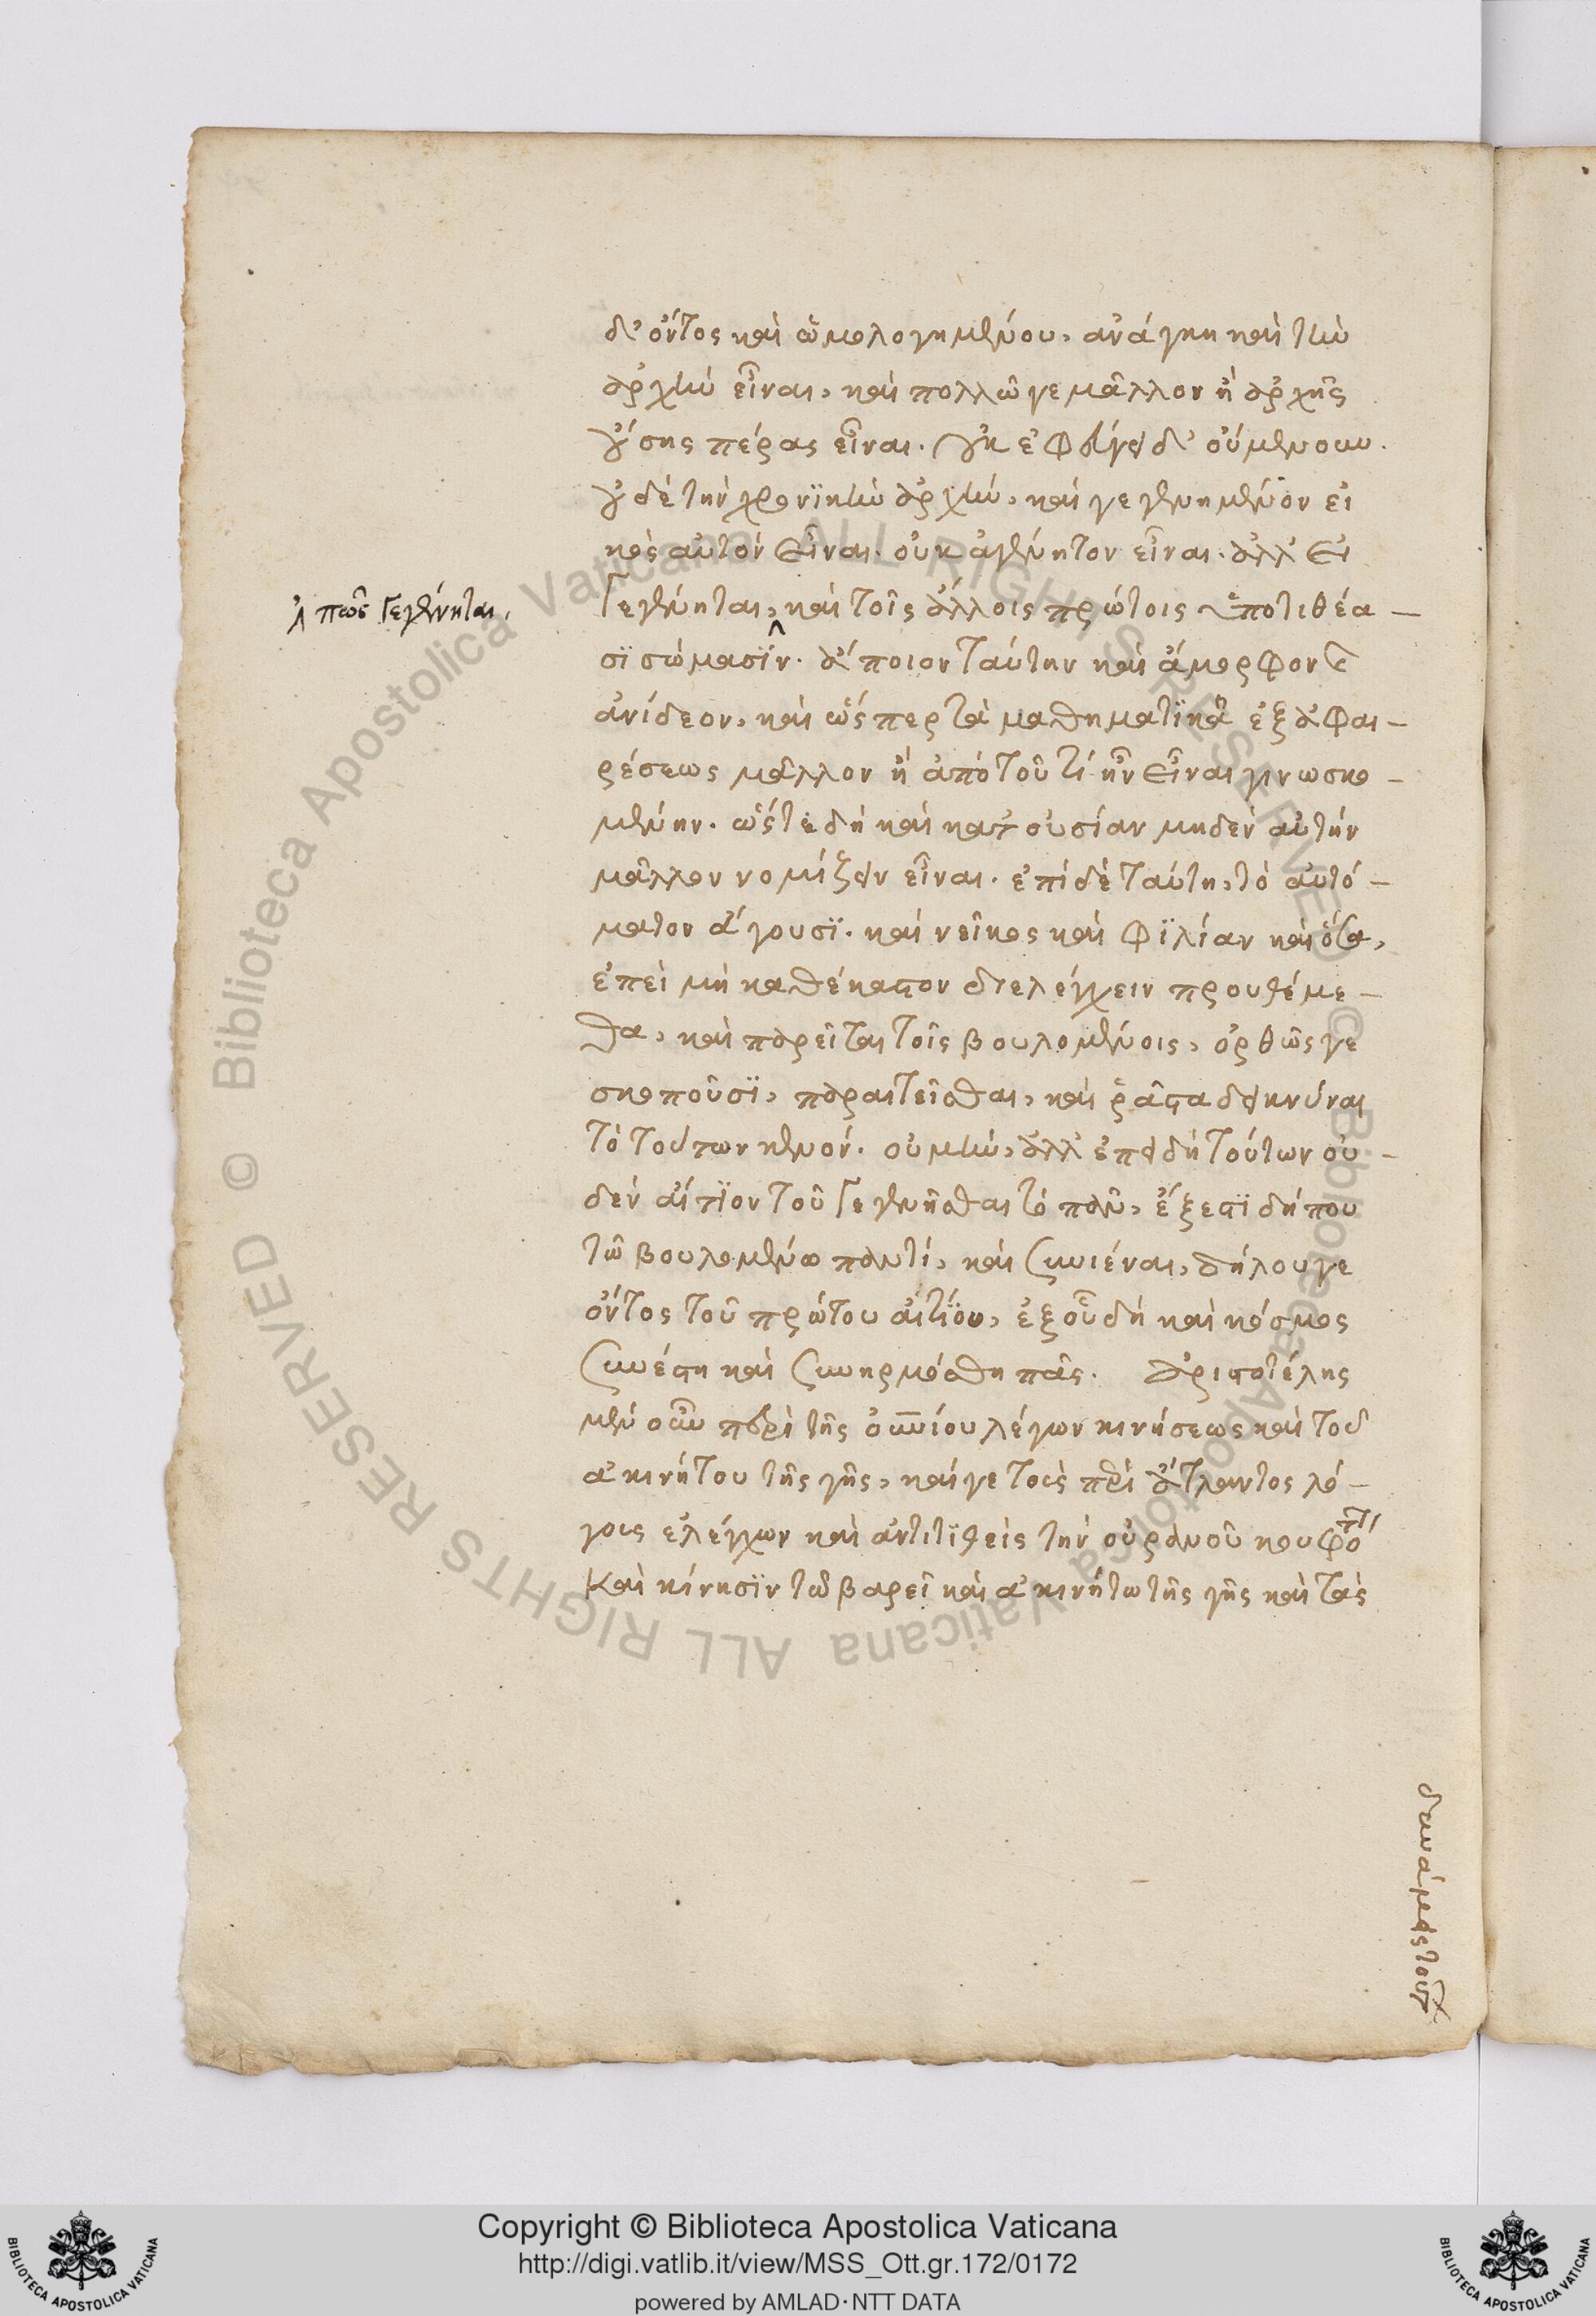 δ' ὄντος καὶ ὡμολογημένου, ἀνάγκη καὶ τὴν
ἀρχὴν εἶναι, καὶ πολλῶ γε μᾶλλον ἢ ἀρχῆς
οὔσης πέρας εἶναι. οὐκ
οὐδὲ τὴν χρονϊκὴν ἀρχὴν, καὶ γεγενημένον εἰ
κὸς αὐτὸν εἶναι. οὐκ ἀγένητον εἶναι. ἀλλ' εἰ
λ πῶς γεγένηται,
γεγένηται, καὶ τοῖς ἄλλοις πρώτοις ὑποτιθέα –
σϊ σώμασϊν. ἄποιον ταύτην καὶ ἄμορφον καὶ
ἀνίδεον, καὶ ὥσπερ τὰ μαθηματϊκὰ ἐξ ἀφαι –
ρέσεως μᾶλλον ἢ ἀπὸ τοῦ τί ἦν εἶναι γινωσκο –
μένην. ὥστε δὴ καὶ κατ' οὐσίαν μηδὲν αὐτὴν
μᾶλλον νομίζειν εἶναι. ἐπὶ δὲ ταύτη, τὸ αὐτό –
ματον ἄγουσϊ. καὶ νεῖκος καὶ φϊλίαν καὶ
ἐπεὶ μὴ καθέκαστον διελέγχειν προυθέμε –
θα, καὶ παρεῖται τοῖς βουλομένοις, ὀρθῶς γε
σκοποῦσϊ, παραιτεῖσθαι, καὶ ῥᾶστα δεικνύναι
τὸ τούτων κενόν. οὐ μὴν, ἀλλ' ἐπεὶ δὴ τούτων οὐ –
δὲν αἴτϊον τοῦ γεγενῆσθαι τὸ πᾶν, ἔξεστϊ δήπου
τῶ βουλομένω παντὶ, καὶ συνιέναι, δήλου γε
ὄντος τοῦ πρώτου αἰτΐου, ἐξ οὗ δὴ καὶ κόσμος
συνέστη καὶ συνηρμόσθη πᾶς. ἀριστοτέλης
μὲν οὖν περὶ τῆς οὐνίου λέγων κινήσεως καὶ τοῦ
ἀκινήτου τῆς γῆς, καί γε τοὺς περὶ ἄτλαντος λό –
γους ἐλέγχων καὶ ἀντιτϊθεὶς τὴν οὐρανοῦ κουφότητα
καὶ κίνησϊν τῶ βαρεῖ καὶ ἀκινήτω τῆς γῆς καὶ τὰς
δυνάμεις